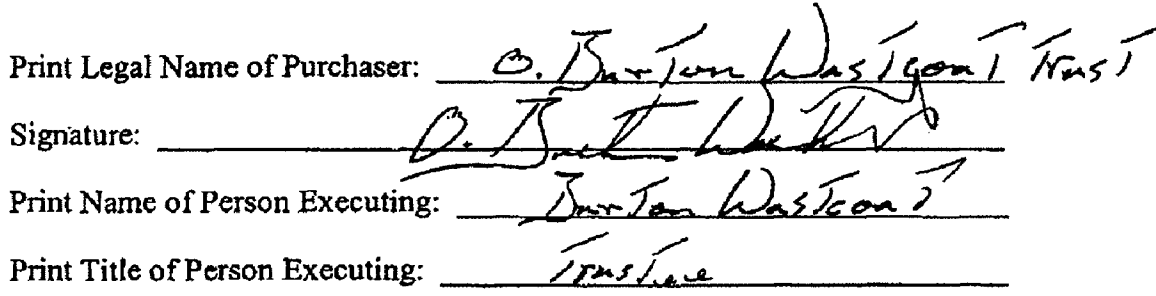 Print Legal Name of Purchaser: O. Burton Wastcoat Trust
Signature: O. Burton
Print Name of Person Executing: Burton Wastcoat
Print Title of Person Executing: Trustee